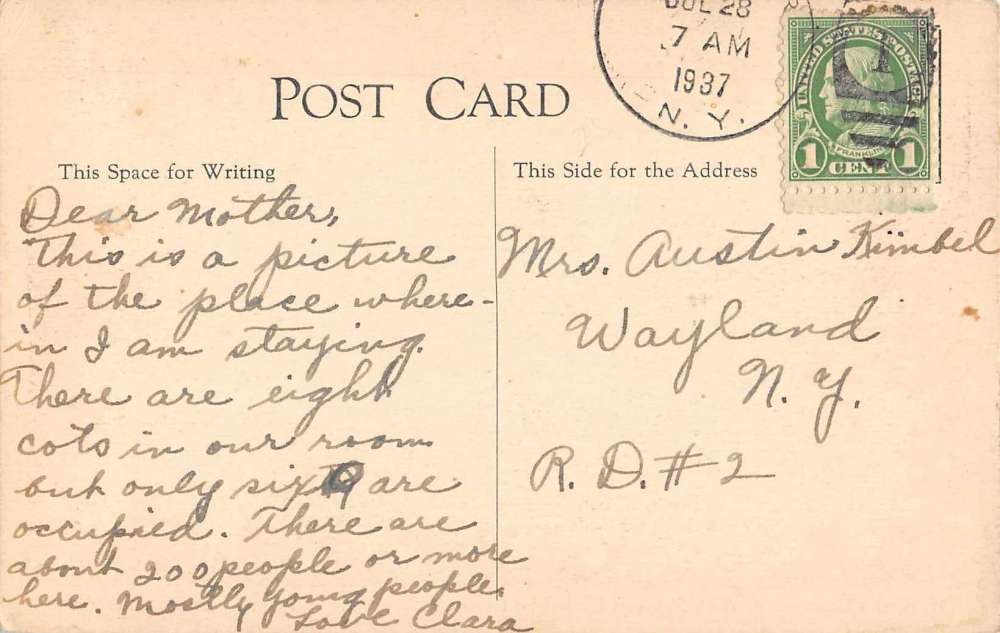 JUL 28
7 AM
1937
N. Y.
UNITED STATES POSTAGE
FRANKLIN
1 CENT 1
POST CARD
This Space for Writing
This Side for the Address
Dear Mother,
This is a picture
of the place where-
in I am staying.
There are eight
cots in our room
but only six are
occupied. There are
about 200 people or more
here. Mostly young people.
Love Clara
Mrs. Austin Kimbel
Wayland
N. Y.
R. D. # 2